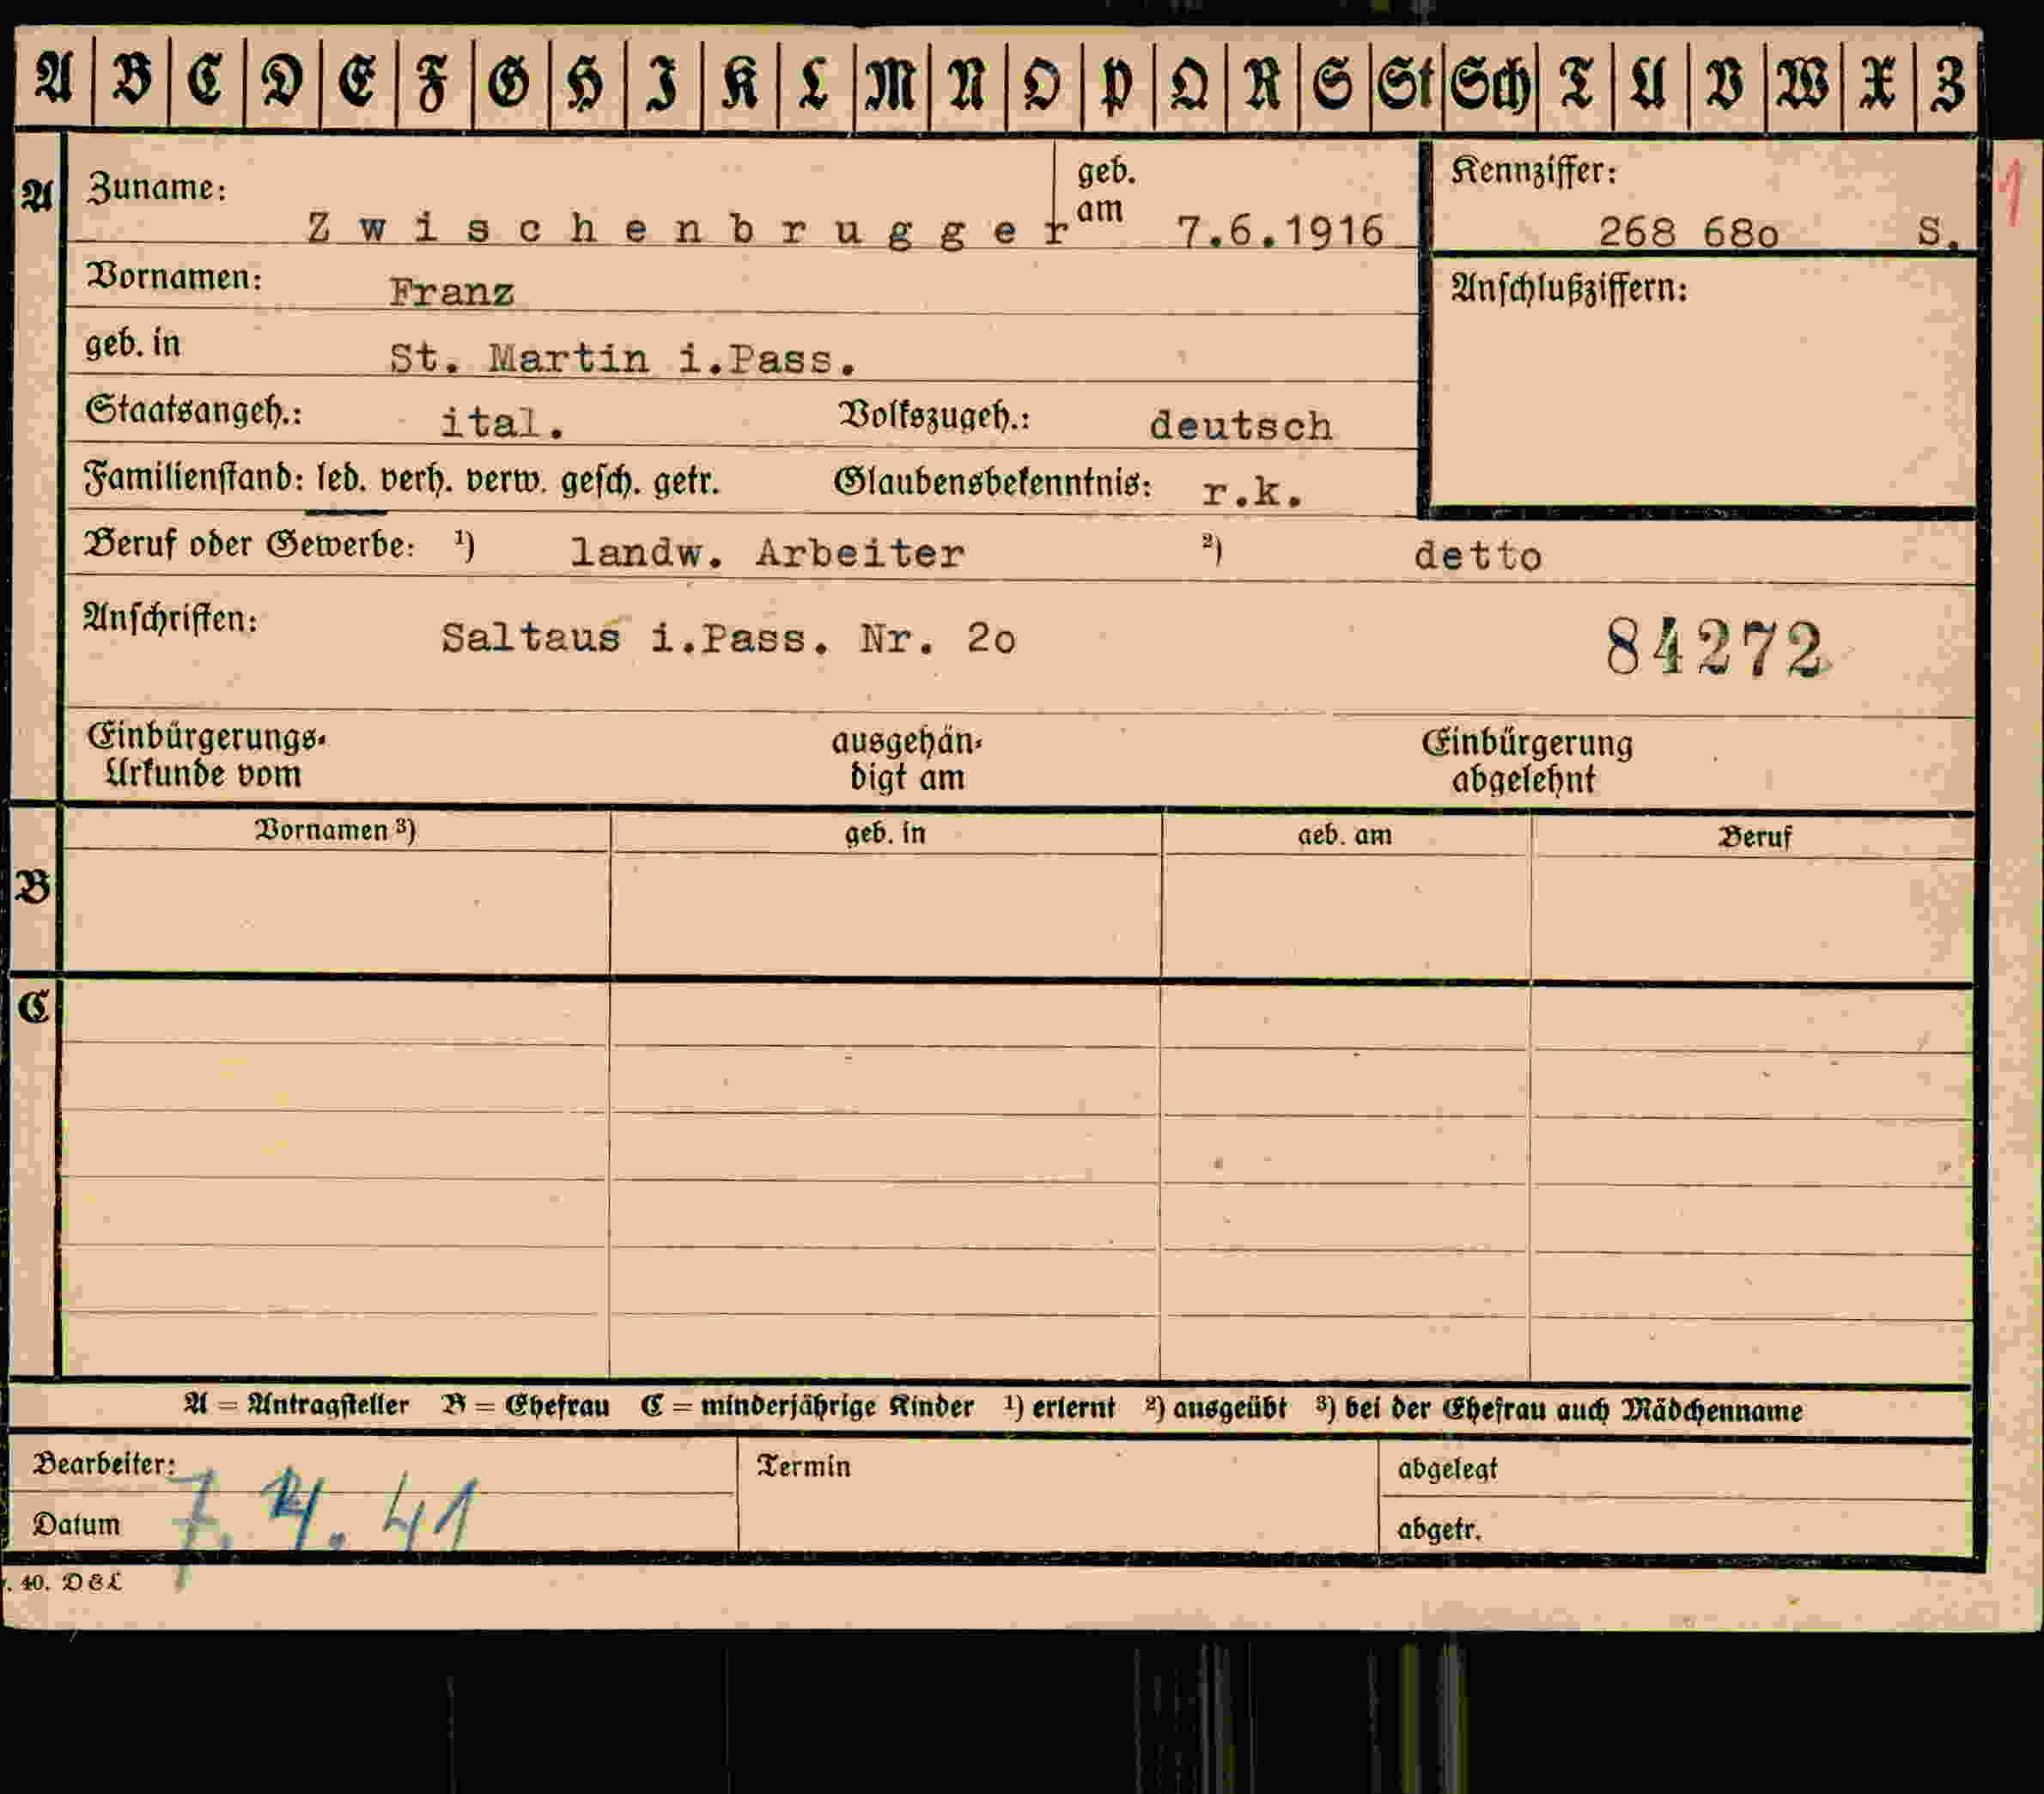 A B C D E F G H I K L M N O P Q R S St Sch T U V W X Z
A Zuname: Zwischenbrugger geb. am 7.6.1916 Kennziffer: 268 68o S. 1
Vornamen: Franz Anschlußziffern:
geb. in St. Martin i.Pass.
Staatsangeh.: ital. Volkszugeh.: deutsch
Familienstand: led. verh. verw. gesch. getr. Glaubensbekenntnis: r.k.
Beruf oder Gewerbe: ¹) landw. Arbeiter ²) detto
Anschriften: Saltaus i.Pass. Nr. 2o 84272
Einbürgerungs- ausgehän- Einbürgerung
Urkunde vom digt am abgelehnt
Vornamen ³) geb. in geb. am Beruf
B
C
A = Antragsteller B = Ehefrau C = minderjährige Kinder ¹) erlernt ²) ausgeübt ³) bei der Ehefrau auch Mädchenname
Bearbeiter: Termin abgelegt
Datum 7. 4. 41 abgetr.
. 40. D&L